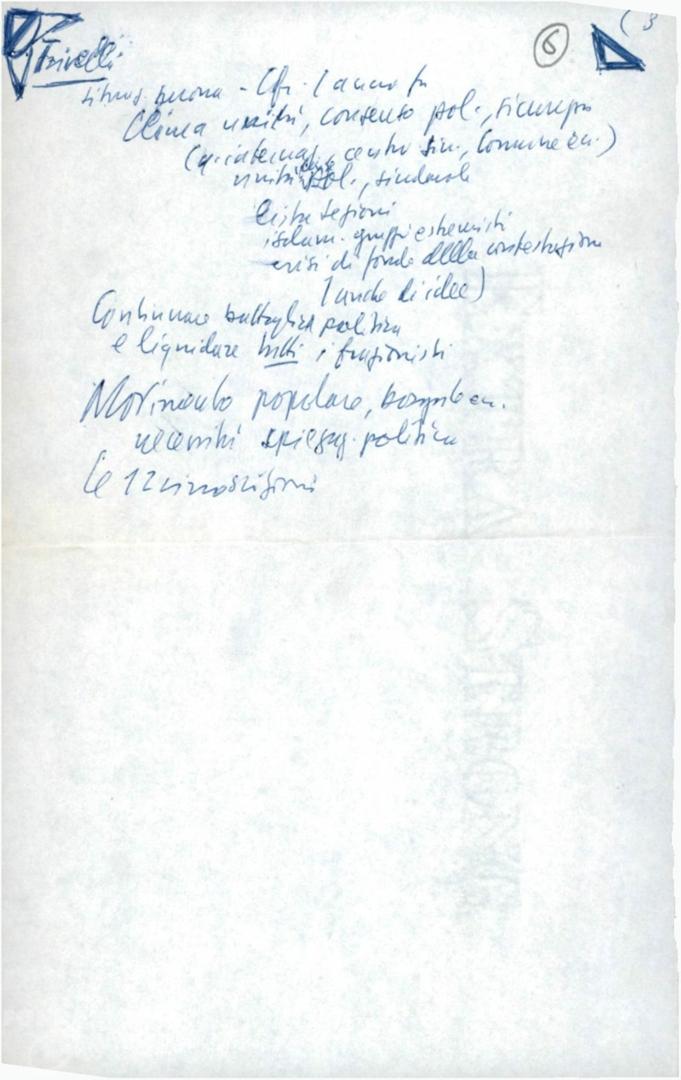 6
Trivelli
situaz. buona - Cfr. 1 anno fa
Clima unità, consenso pol., sicurezza
(q. internaz., centro sin., Comune ecc.)
unità pol., sindacale
lista sezioni
isolam. gruppi estremisti
crisi di fondo della contestazione
(anche di idee)
Continuare battaglia politica
e liquidare tutti i frazionisti
Movimento popolare, ecc.
necessità spiegaz. politica
Le 12 circoscrizioni